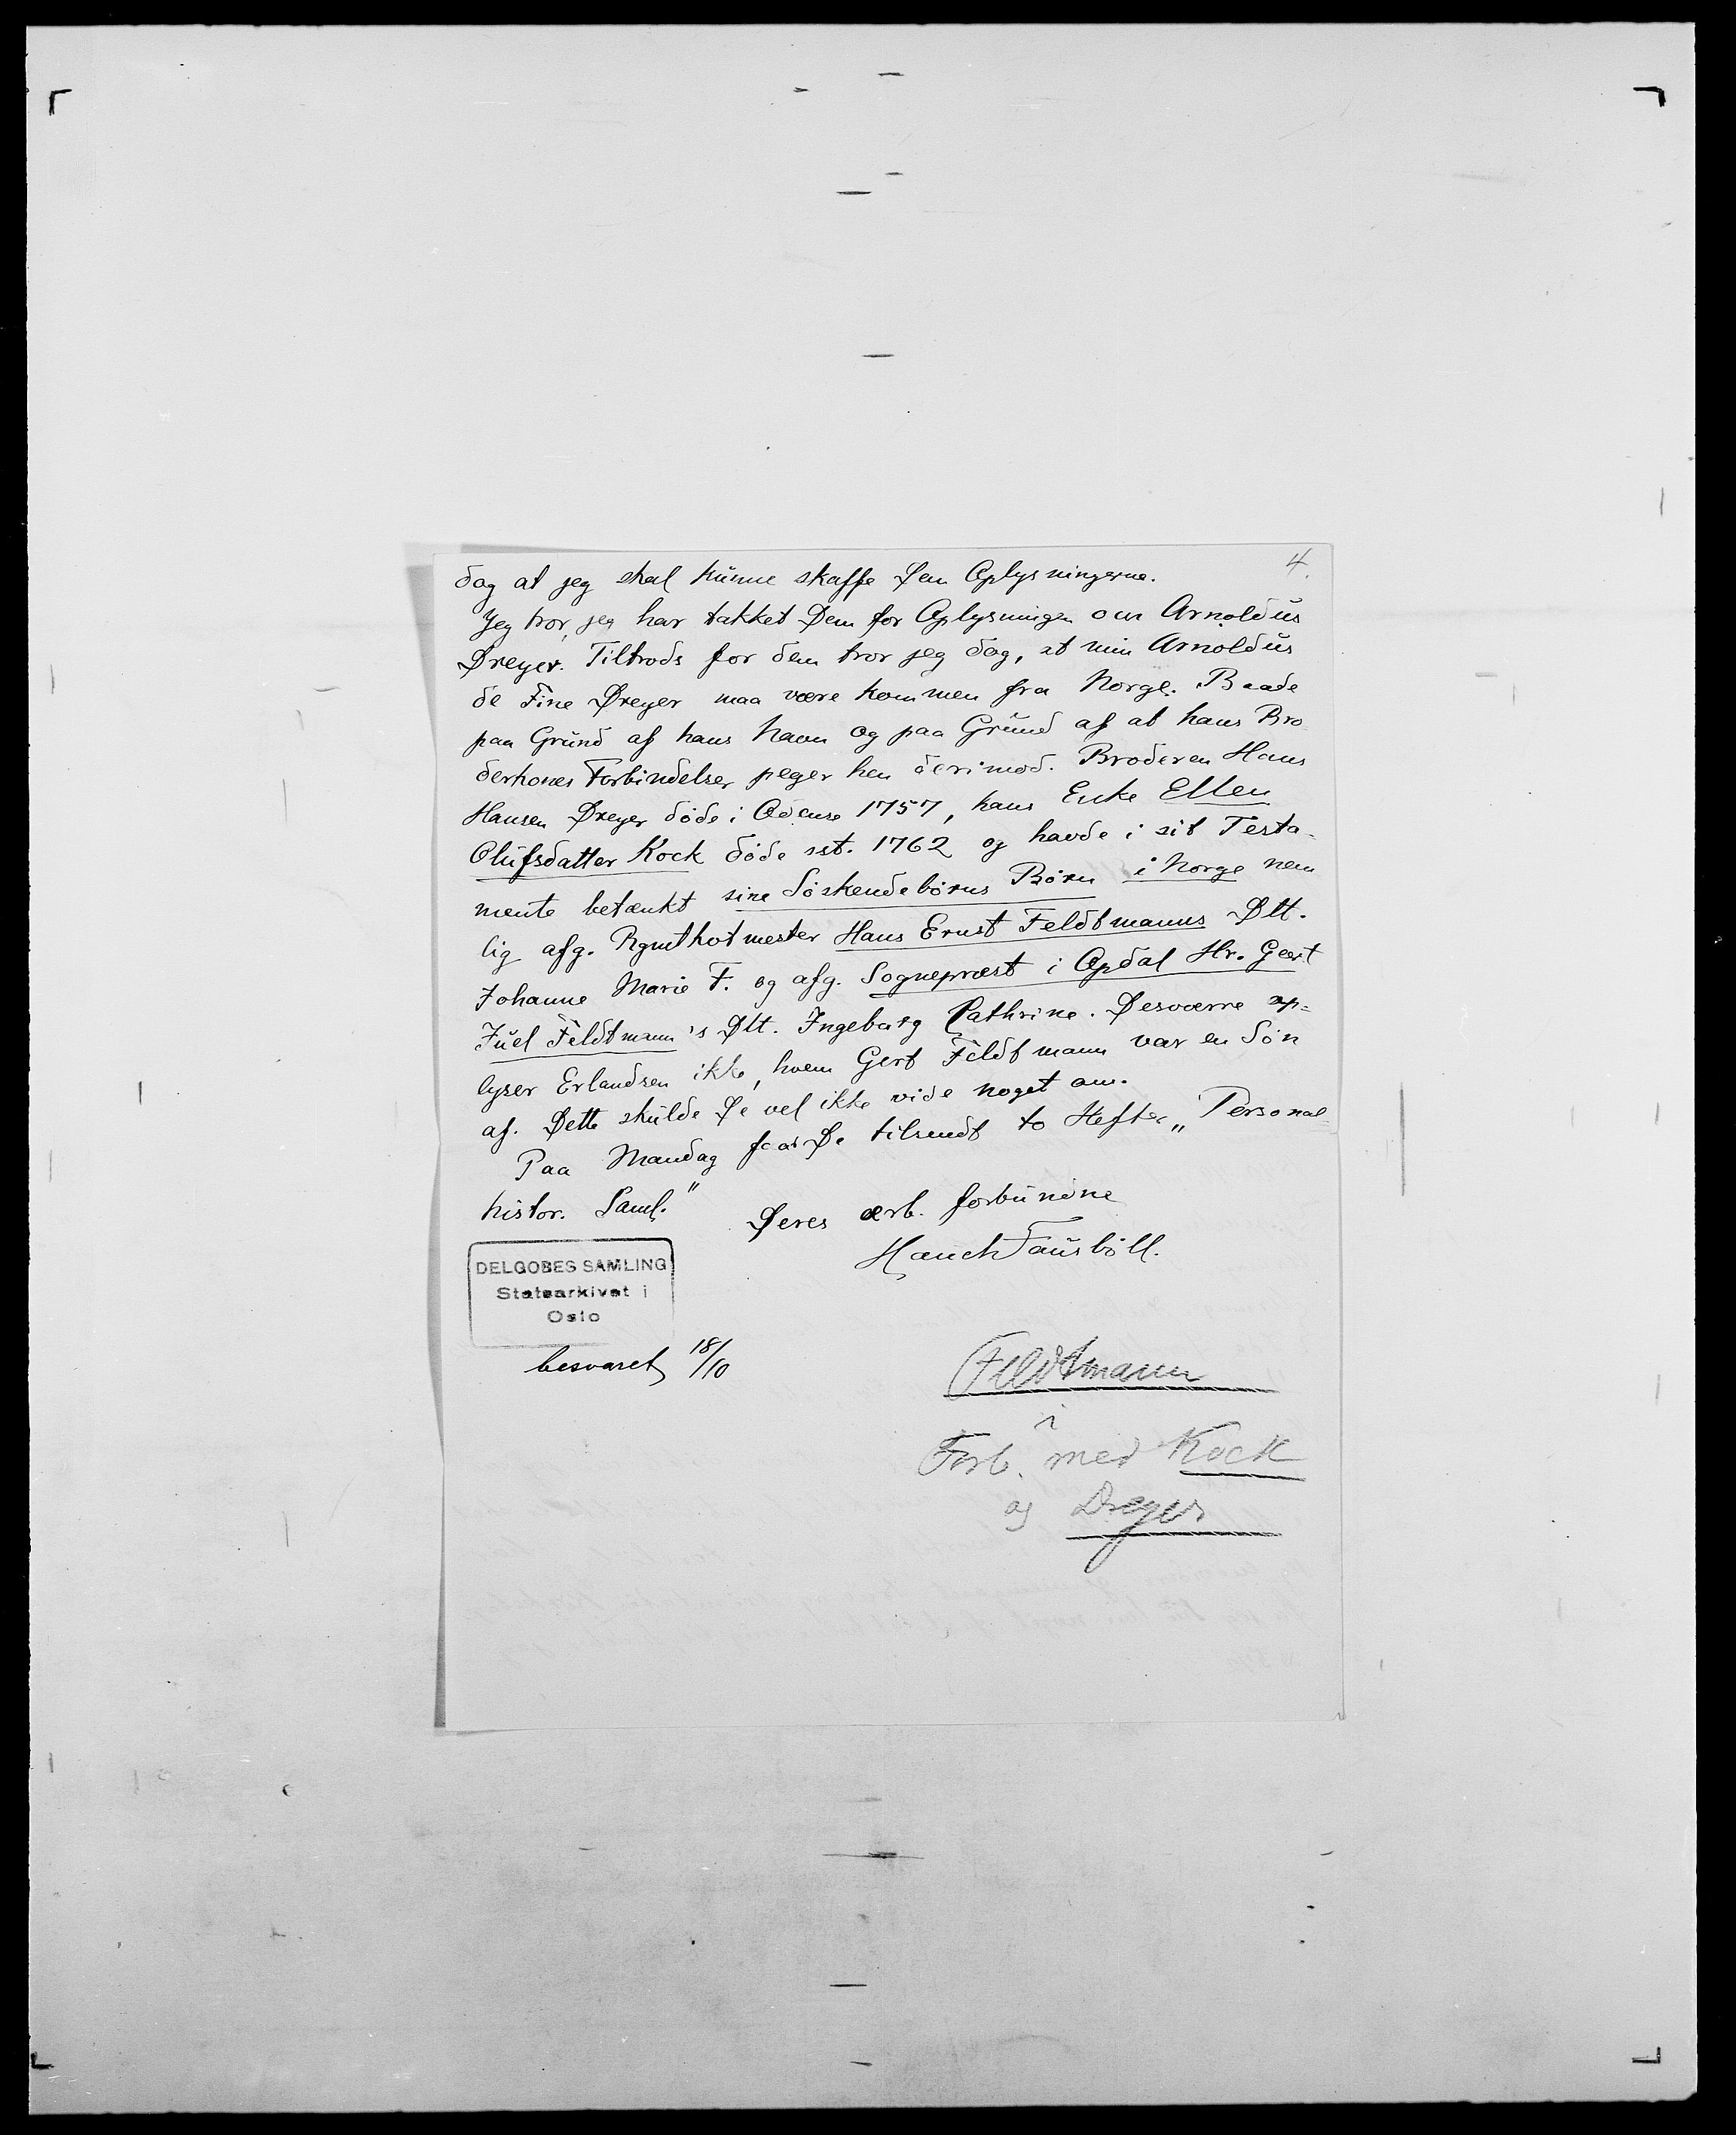 4.
dog at jeg skal kunne skaffe Dem Oplysningerne.
Jeg tror, jeg har takket Dem for Oplysningen om Arnoldus
Dreyer. Tiltrods for dem tror jeg dog, at min Arnoldus
de Fine Dreyer maa være kommen fra Norge. Baade
paa Grund af hans Navn og paa Grund af at hans Bro
derkones Forbindelser peger hen derimod. Broderen Hans
Hansen Dreyer døde i Odense 1757, hans Enke Ellen
Olufsdatter Kock døde sst. 1762 og havde i sit Testa-
mente betænkt sine Søskendebørns Børn i Norge nem
lig afg. Rgmtkvtmester Hans Ernst Feldtmanns Dtt.
Johanne Marie F. og afg. Sognepræst i Opdal Hr. Geert
Juel Feldtmann's Dtt. Ingeborg Cathrine. Desværre op-
lyser Erlandsen ikke, hvem Gert Feldtmann var en Søn
af. Dette skulde De vel ikke vide noget om.
Paa Mandag faar De tilsendt to Hefter „Personal-
histor. Saml."
Deres ærb. forbundne
Hauch Fausbøll.
DELGOBES SAMLING
Statsarkivet i
Oslo
besvaret 18/10
Feldtmann
i
Forb. med Kock
og Dreyer